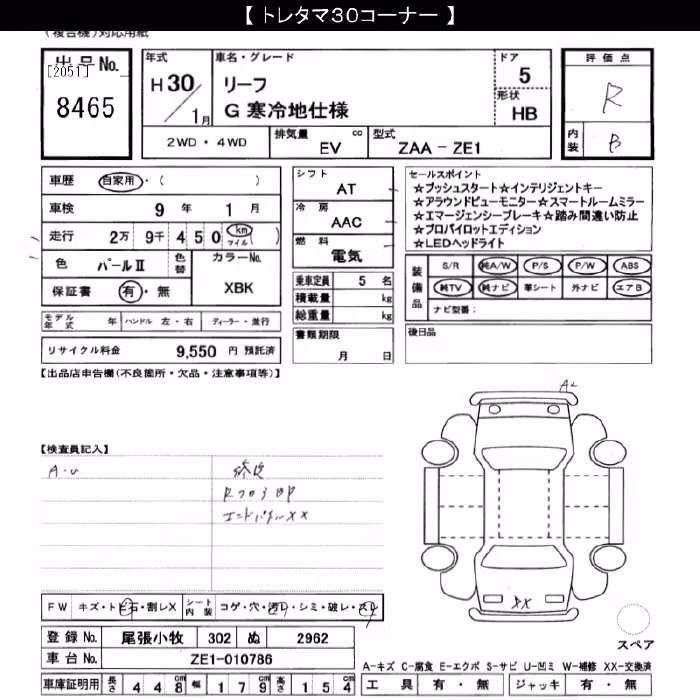 【 トレタマ３０コーナー 】
(複合機)対応用紙
出品No.
[2051]
8465
年式
H30/1月
車名・グレード
リーフ
G 寒冷地仕様
ドア
5
形状
HB
評価点
R
内装
B
2WD・4WD
排気量 cc
EV
型式
ZAA-ZE1
車歴 自家用・( )
車検 9年 1月
走行 2万9千450 km マイル ( )
色 パールⅡ 色替 カラーNo.
保証書 有・無 XBK
シフト
AT
冷房
AAC
燃料
電気
乗車定員 5 名
積載量 kg
総重量 kg
書類期限
月 日
セールスポイント
☆プッシュスタート☆インテリジェントキー
☆アラウンドビューモニター☆スマートルームミラー
☆エマージェンシーブレーキ☆踏み間違い防止
☆プロパイロットエディション
☆LEDヘッドライト
装備品
S/R 純A/W P/S P/W ABS
純TV 純ナビ 革シート 外ナビ エアB
ナビ型番：
後日品
モデル年式 年 ハンドル 左・右 ディーラー・並行
リサイクル料金 9,550 円 預託済
【出品店申告欄(不良箇所・欠品・注意事項等)】
【検査員記入】
A-U
修復
エンドパネルXX
A2
XX
FW キズ・トビ石・割レX シート内装 コゲ・穴・汚レ・シミ・破レ・スレ
登録No. 尾張小牧 302 ぬ 2962
車台No. ZE1-010786
車庫証明用 長さ 448cm 幅 179cm 高さ 154cm
スペア
A-キズ C-腐食 E-エクボ S-サビ U-凹ミ W-補修 XX-交換済
工具 有・無 ジャッキ 有・無